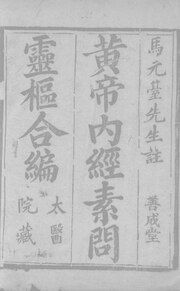 馬元臺先生註
善成堂
黃帝內經素問
靈樞合編
太醫
院藏